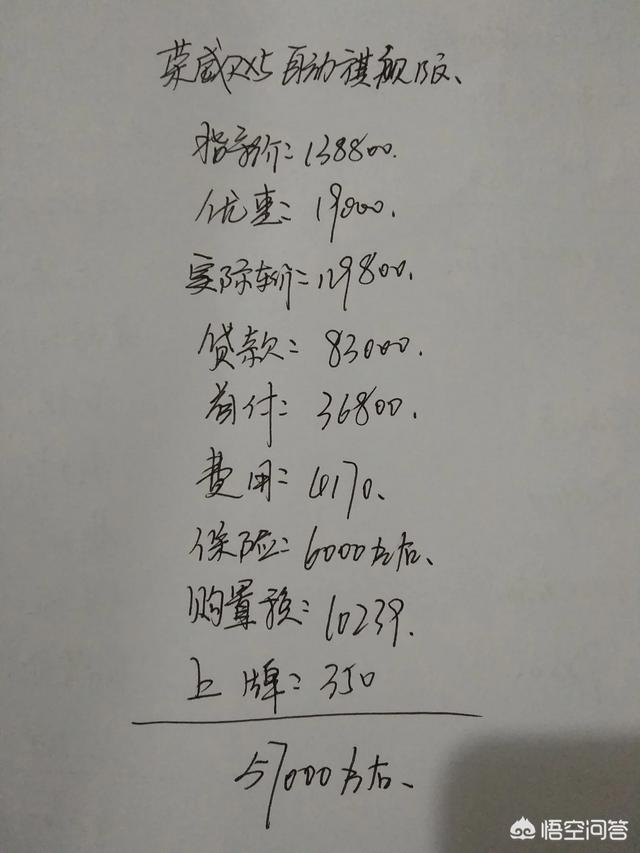 荣威RX5自动旗舰版、
指导价：138800.
优惠：19000.
实际车价：119800.
贷款：83000.
首付：36800.
费用：4170、
保险：6000左右、
购置税：10239.
上牌：350
57000左右、
悟空问答